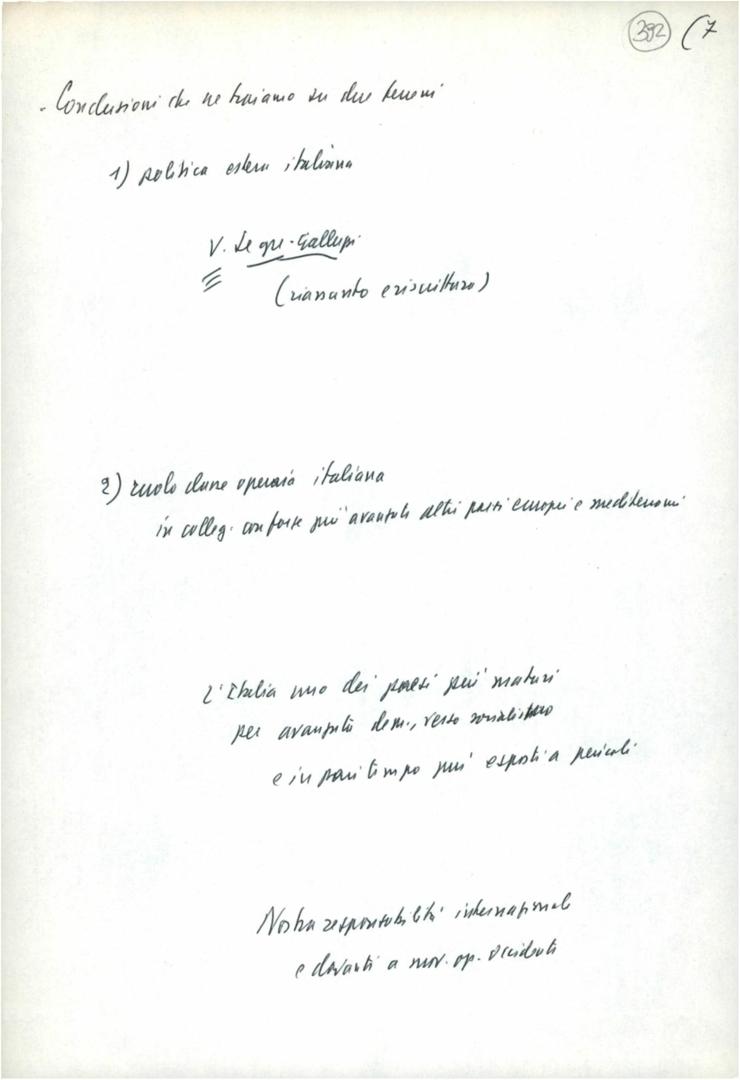 392 (7
- Conclusioni che ne traiamo su due terreni
1) politica estera italiana
V. Segre-Gallupi
(riassunto e riscrittura)
2) ruolo classe operaia italiana
in colleg. con forze più avanzate altri paesi europei e mediterranei
L'Italia uno dei paesi più maturi
per avanzata dem., verso socialismo
e in pari tempo più esposti a pericoli
Nostra responsabilità internazionale
e davanti a mov. op. occidentale